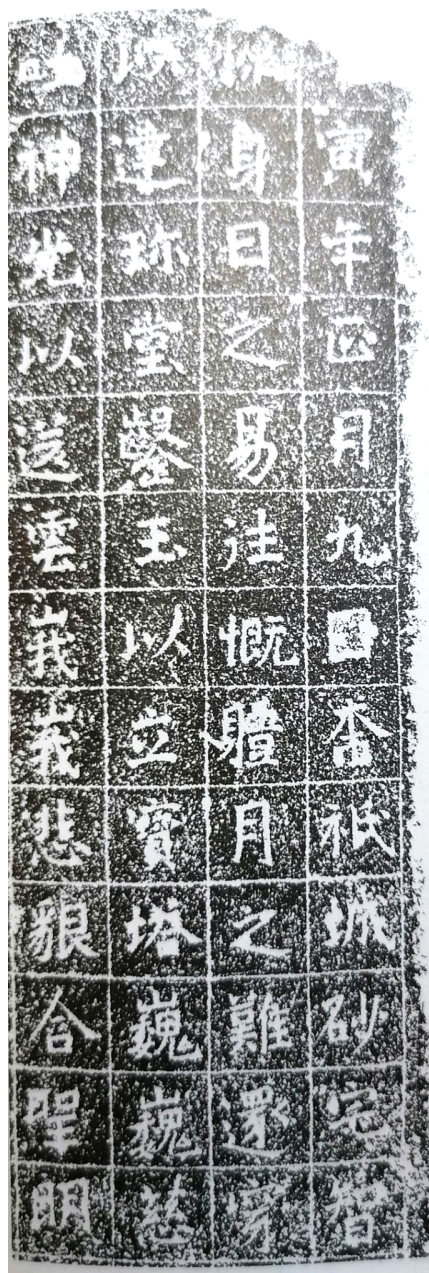 寅年正月九日奈祇城砂宅智
慷身日之易往慨體月之難還穿
以建珎堂鑿玉以立寶塔巍巍慈
吐神光以送雲峩峩悲貇含聖明